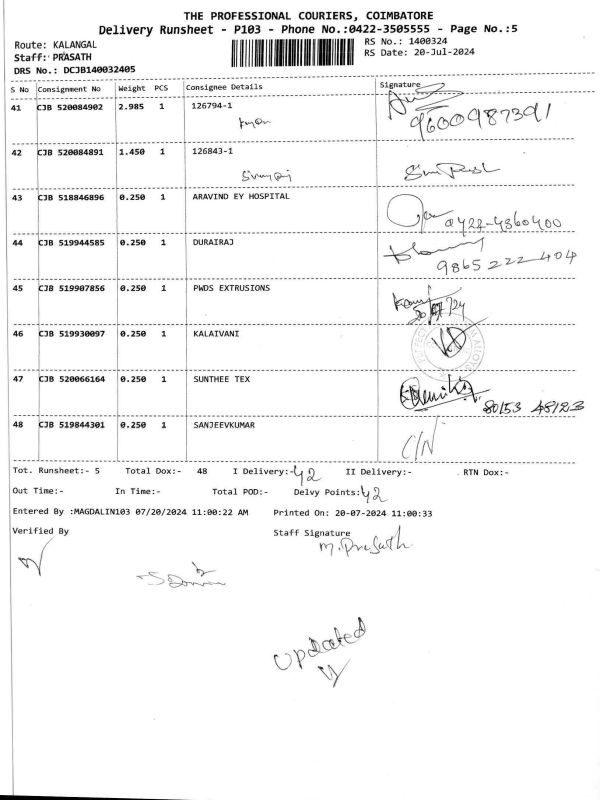 THE PROFESSIONAL COURIERS, COIMBATORE
Delivery Runsheet - P103 - Phone No.:0422-3505555 - Page No.:5
Route: KALANGAL
RS No.: 1400324
Staff: PRASATH
RS Date: 20-Jul-2024
DRS No.: DCJB140032405
S No Consignment No Weight PCS Consignee Details Signature
41 CJB 520084902 2.985 1 126794-1
9600987391
42 CJB 520084891 1.450 1 126843-1
43 CJB 518846896 0.250 1 ARAVIND EY HOSPITAL
0422-4360400
44 CJB 519944585 0.250 1 DURAIRAJ
9865222404
45 CJB 519907856 0.250 1 PWDS EXTRUSIONS
46 CJB 519930097 0.250 1 KALAIVANI
47 CJB 520066164 0.250 1 SUNTHEE TEX
80153 48123
48 CJB 519844301 0.250 1 SANJEEVKUMAR
C/N
Tot. Runsheet:- 5 Total Dox:- 48 I Delivery:-42 II Delivery:- RTN Dox:-
Out Time:- In Time:- Total POD:- Delvy Points:42
Entered By :MAGDALIN103 07/20/2024 11:00:22 AM Printed On: 20-07-2024 11:00:33
Verified By Staff Signature
M. Prasath
Updated